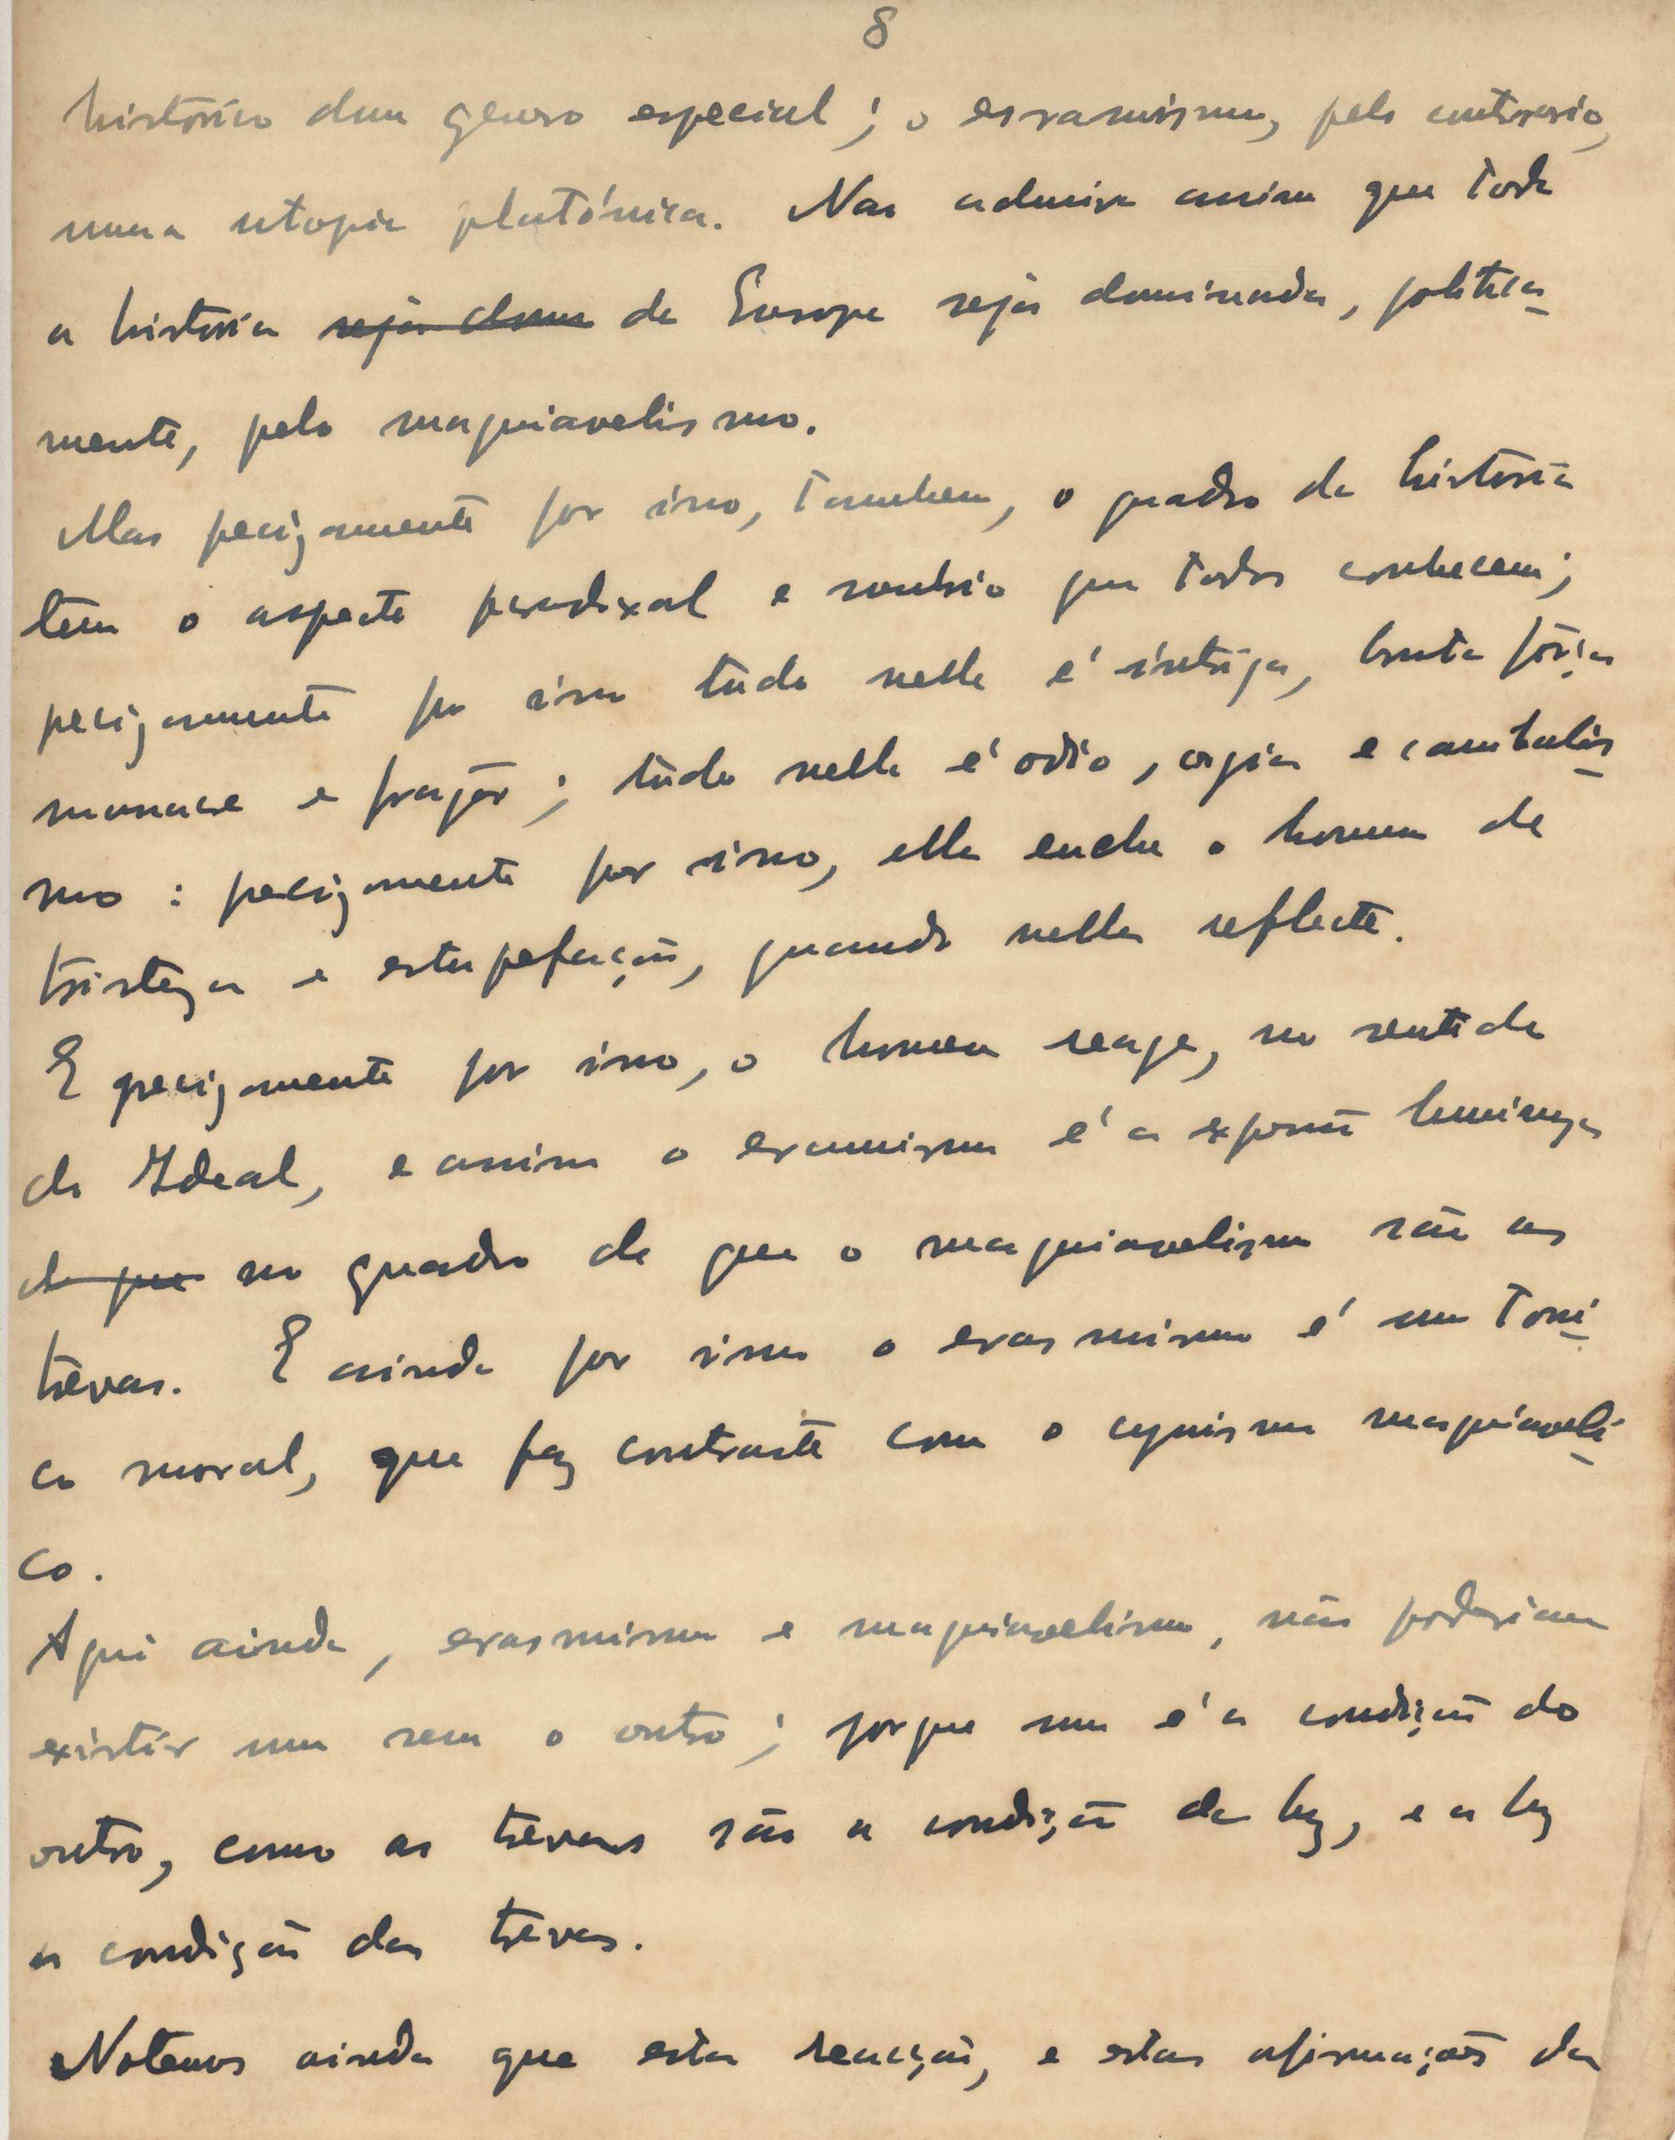 8
historico dum genero especial; o erasmismo, pelo contrario,
numa utopia platónica. Nao admira assim que toda
a historia seja domi da Europa seja dominada, politica-
mente, pelo maquiavelismo.
Mas precizamente por isso, tambem, o quadro da historia
tem o aspecto paradoxal e sombrio que todos conhecem;
precizamente por isso tudo nella é intriga, bruta força
e fragor; tudo nella é odio, orgia e canibalis-
mo: precizamente por isso, ella enche o homem de
tristeza e estupefação, quando nella reflecte.
E precizamente por isso, o homem reage, no sentido
do Ideal, e assim o erasmismo é a luminoza
do que no quadro de que o maquiavelismo são as
trevas. E ainda por isso o erasmismo é um toni-
co moral, que faz contraste com o cynismo maquiaveli-
co.
Aqui ainda, erasmismo e maquiavelismo, não poderiam
existir um sem o outro; porque um é a condição do
outro, como as trevas são a condição da luz, e a luz
a condição das trevas.
Notemos ainda que esta reacção, e estas afirmações da